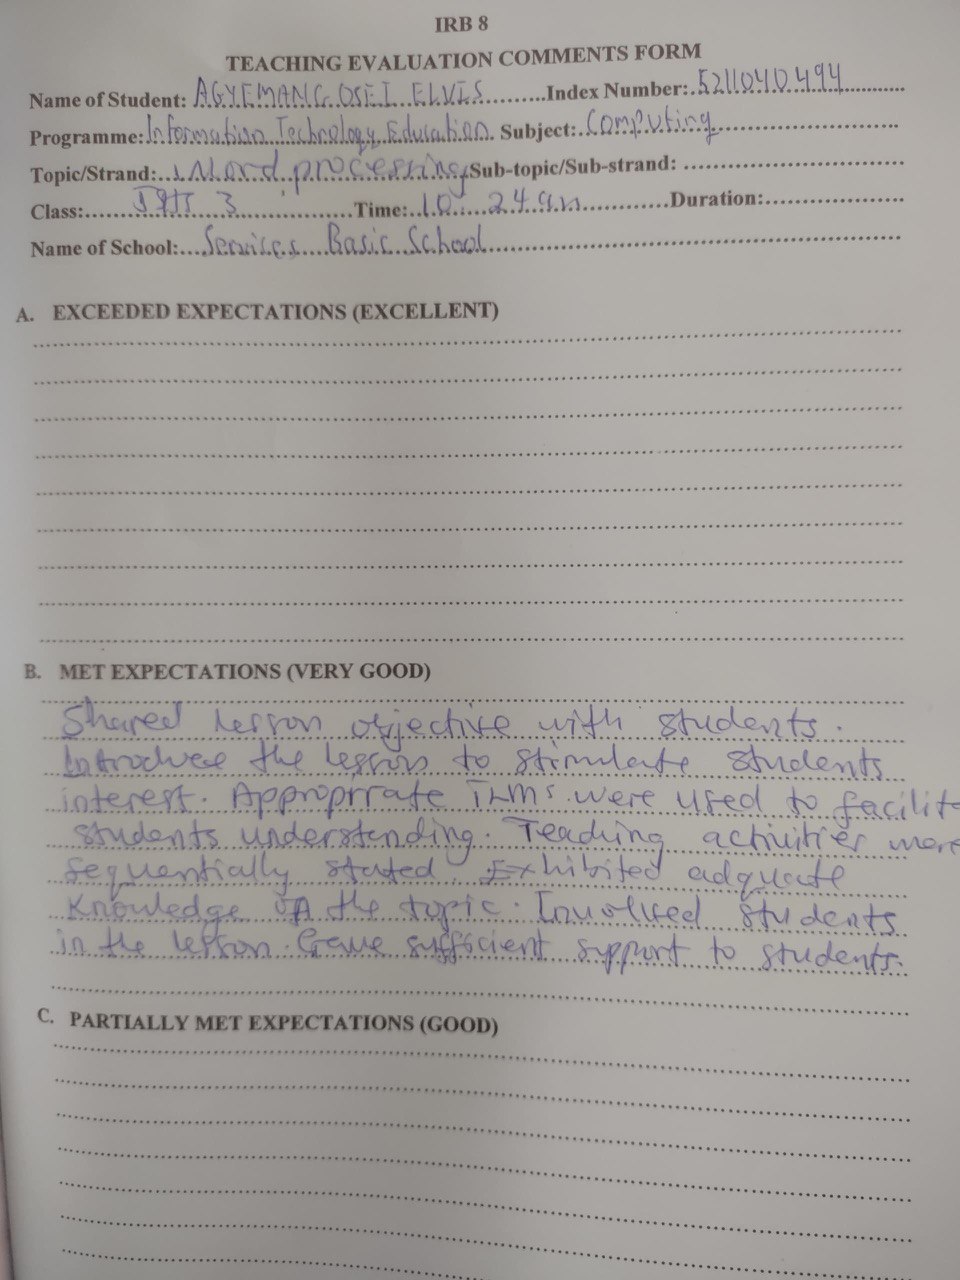 IRB 8
TEACHING EVALUATION COMMENTS FORM
Name of Student: AGYEMANG OSEI ELVIS Index Number: 5211040494
Programme: Information Technology Education Subject: Computing
Topic/Strand: Word processing Sub-topic/Sub-strand:
Class: JHS 3 Time: 10:24am Duration:
Name of School: Services Basic School
A. EXCEEDED EXPECTATIONS (EXCELLENT)
B. MET EXPECTATIONS (VERY GOOD)
Shared lesson objective with students.
Introduce the lesson to stimulate students
interest. Appropriate TLMs were used to facilit
students understanding. Teaching activities were
sequentially stated. Exhibited adquate
knowledge of the topic. Involved students
in the lesson. Gave sufficient support to students.
C. PARTIALLY MET EXPECTATIONS (GOOD)